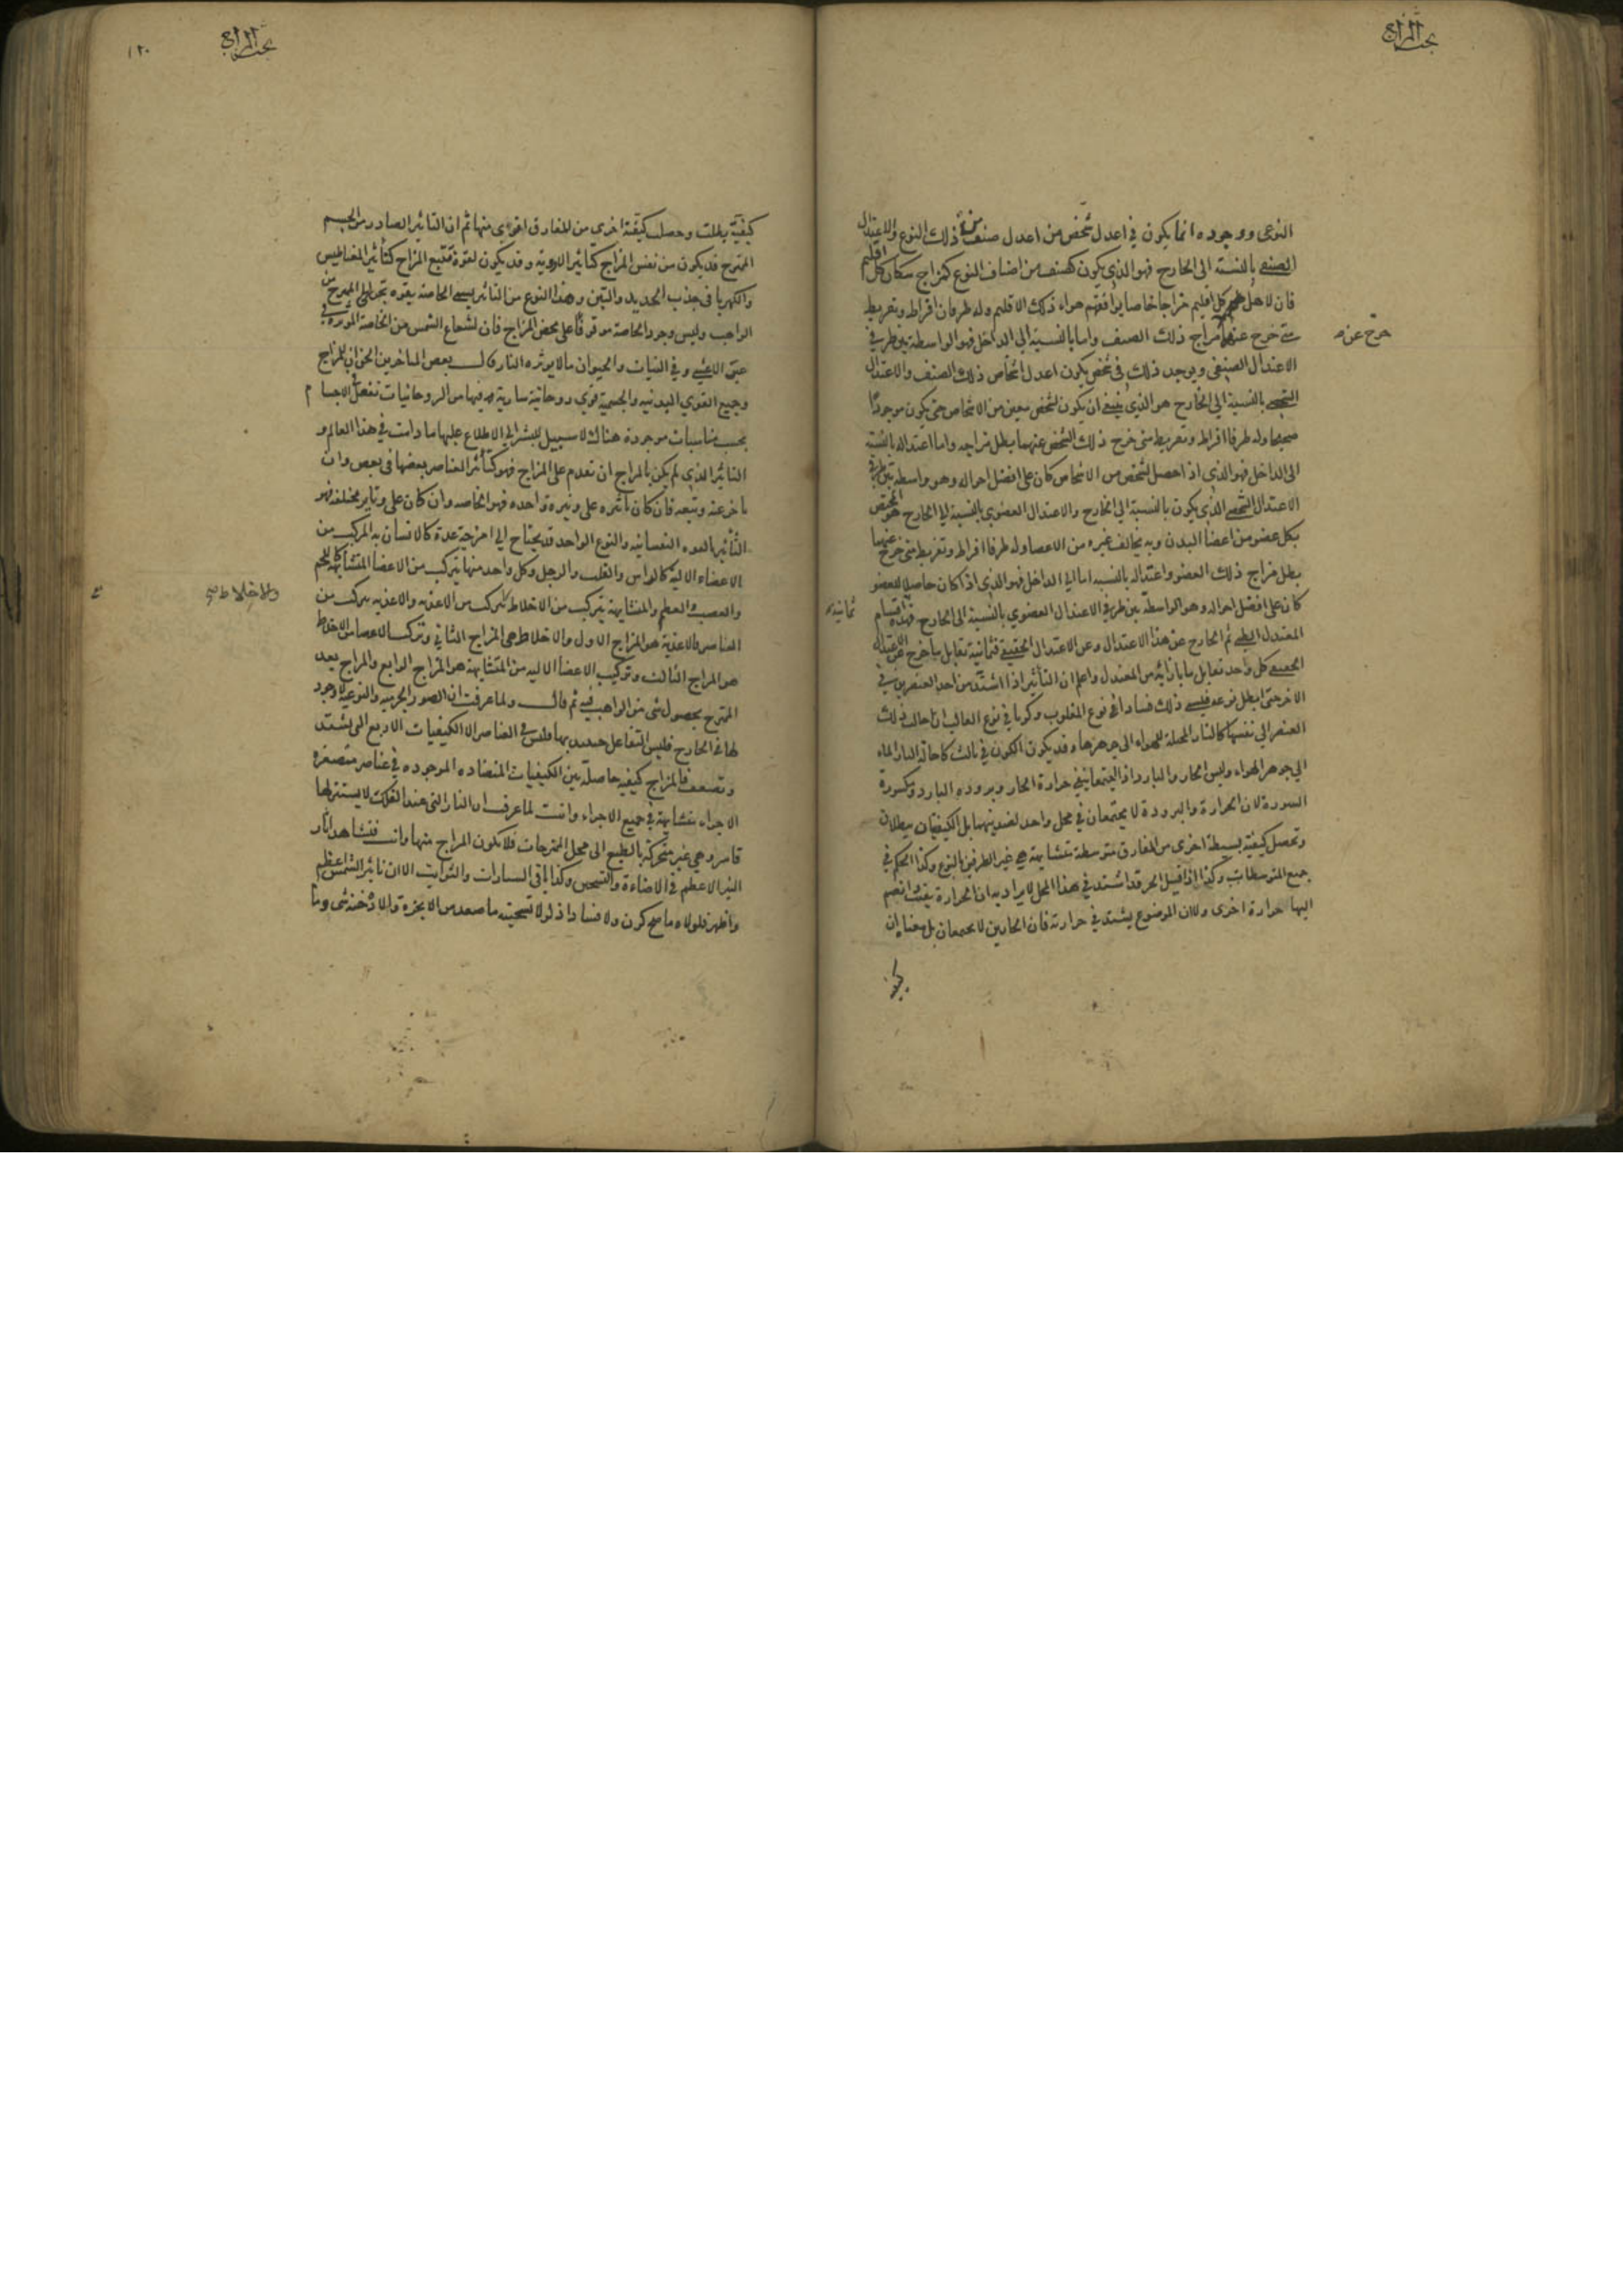 بحث المزاج
النوعى ووجوده انما يكون فى اعدل شخص من اعدل صنف من ذلك النوع والاعتدال
الصنفى بالنسبة الى الخارج فهو الذى يكون كصنف من اصناف النوع كمزاج سكان كل اقليم
فان لاهل كل اقليم مزاجا خاصا يوافقهم هواء ذلك الاقليم وله طرفان افراط وتفريط
متى خرج عنهما مزاج ذلك الصنف واما بالنسبة الى الداخل فهو الواسطة بين طرفى
خرج عن
الاعتدال الصنفى ويوجد ذلك فى شخص يكون اعدل اشخاص ذلك الصنف والاعتدال
الشخصى بالنسبة الى الخارج هو الذى ينبغى ان يكون لشخص معين من الاشخاص حتى يكون موجودا
صحيحا وله طرفا افراط وتفريط متى خرج ذلك الشخص عنهما بطل مزاجه واما اعتداله بالنسبة
الى الداخل فهو الذى اذا حصل لشخص من الاشخاص كان على افضل احواله وهو واسطة بين طرفى
الاعتدال الشخصى الذى يكون بالنسبة الى الخارج والاعتدال العضوى بالنسبة الى الخارج هو المختص
بكل عضو من اعضا البدن وبه يخالف غيره من الاعضا وله طرفا افراط وتفريط متى خرج عنهما
بطل مزاج ذلك العضو واعتداله بالنسبه الى الداخل فهو الذى اذا كان حاصلا للعضو
كان على افضل احواله وهو الواسطة بين طرفى الاعتدال العضوى بالنسبة الى الخارج فهذه اقسام
ثمانية
المعتدل الطبى ثم الخارج عن هذا الاعتدال وعن الاعتدال الحقيقى فثمانية تقابل ما خرج عن الاعتدال
الحقيقى كل واحد تقابل ما بازائه من المعتدل واعلم ان التأثير اذا اشتد من احد العنصرين فى
الاخر حتى ابطل نوعه فيسمى ذلك فسادا فى نوع المغلوب وكونا فى نوع الغالب ان احال ذلك
العنصر الى نفسها كالنار المحيلة للهواء الى جوهرها وقد يكون الكون فى ثالث كاحالة النار الماء
الى جوهر الهواء وليس الحار والبارد اذا اجتمعا يبقى حرارة الحار وبرودة البارد مكسورة
السورة لان الحرارة والبرودة لا يجتمعان فى محل واحد لضديتهما بل الكيفيتان يبطلان
وتحصل كيفية بسيطة اخرى من المفارق متوسطة متشابهة هى غير الطرفين بالنوع وكذا الحكم فى
جميع المتوسطات وكذا اذا قيل الحر قد اشتد فى هذا المحل لا يراد به ان الحرارة بقيت وانضم
اليها حرارة اخرى ولان الموضوع يشتد فى حرارته فان الحارين لا يجتمعان بل معناه ان
بحث المزاج
١٢٠
كيفية بطلت وحصلت كيفية اخرى من المفارق اقوى منها ثم ان التاثير الصادر من الجسم
الممتزج قد يكون من نفس المزاج كتأثير الادوية وقد يكون لقوة تتبع المزاج كتأثير المغناطيس
والكهربا فى جذب الحديد والتبن وهذا النوع من التاثير يسمى الخاصة بقوة تحدث الى الممتزج من
الواهب وليس وجود الخاصة موقوفا على محض المزاج فان لشعاع الشمس من الخاصة المؤثرة فى
وفى النبات والحيوان ما لا يوثره النار قال بعض المتاخرين الحق ان للمزاج
وجميع القوى البدنيه والجسمية قوى روحانية سارية فيها من الروحانيات تفعل الاجسام
بحسب مناسبات موجودة هناك لا سبيل للبشر الى الاطلاع عليها ما دامت فى هذا العالم و
التاثير الذى لم يكن بالمزاج ان تقدم على المزاج فهو كتأثير العناصر بعضها فى بعض وان
تاخر عنه وتبعه فان كان تاثيره على وتيرة واحده فهو الخاصه وان كان على وتاير مختلفه فهو
التأثير بالقوه النفسانيه والنوع الواحد قد يحتاج الى امزجة عدة كالانسان المركب من
الاعضاء الالية كالراس والقلب والرجل وكل واحد منها يتركب من الاعضا المتشابهة كاللحم
والعصب والعظم والمتشابهة يتركب من الاخلاط يتركب من الاغذيه والاغذيه يتركب من
والاخلاط
العناصر فالاغذية هو المزاج الاول والاخلاط هى المزاج الثانى وتركب الاعضا من الاخلاط
هو المزاج الثالث وتركيب الاعضا الاليه من المتشابهة هو المزاج الرابع والمزاج يعد
الممتزج بحصول شى من الواهب فيه ثم قال ولما عرفت ان الصور الجرميه والنوعيه لا وجود
لها فى الخارج فليس التفاعل حينئذ بها فليس فى العناصر الا الكيفيات الاربع التى يشتد
وتضعف فالمزاج كيفيه حاصلة بين الكيفيات المتضاده الموجوده فى عناصر متصغرة
الاجزاء متشابهة فى جميع الاجزاء وانت لما عرفت ان النار التى عند الفلك لا يستنزلها
قاسر وهى غير متحركة بالطبع الى محل الممتزجات فلا يكون المزاج منها وانت فتشاهد اثار
النير الاعظم فى الاضاءة والتسخين وكذا باقى السيارات والثوابت الا ان تاثير الشمس اعظم
واظهر فلولاه ما صح كون ولا فساد اذ لولا تسخينه ما صعد من الابخرة والادخنة شى وما